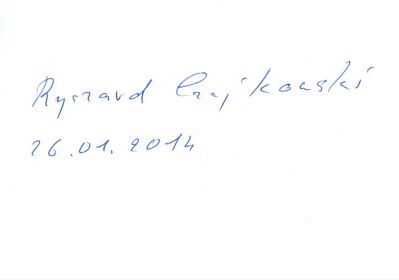 Ryszard Czajkowski
26.01.2014